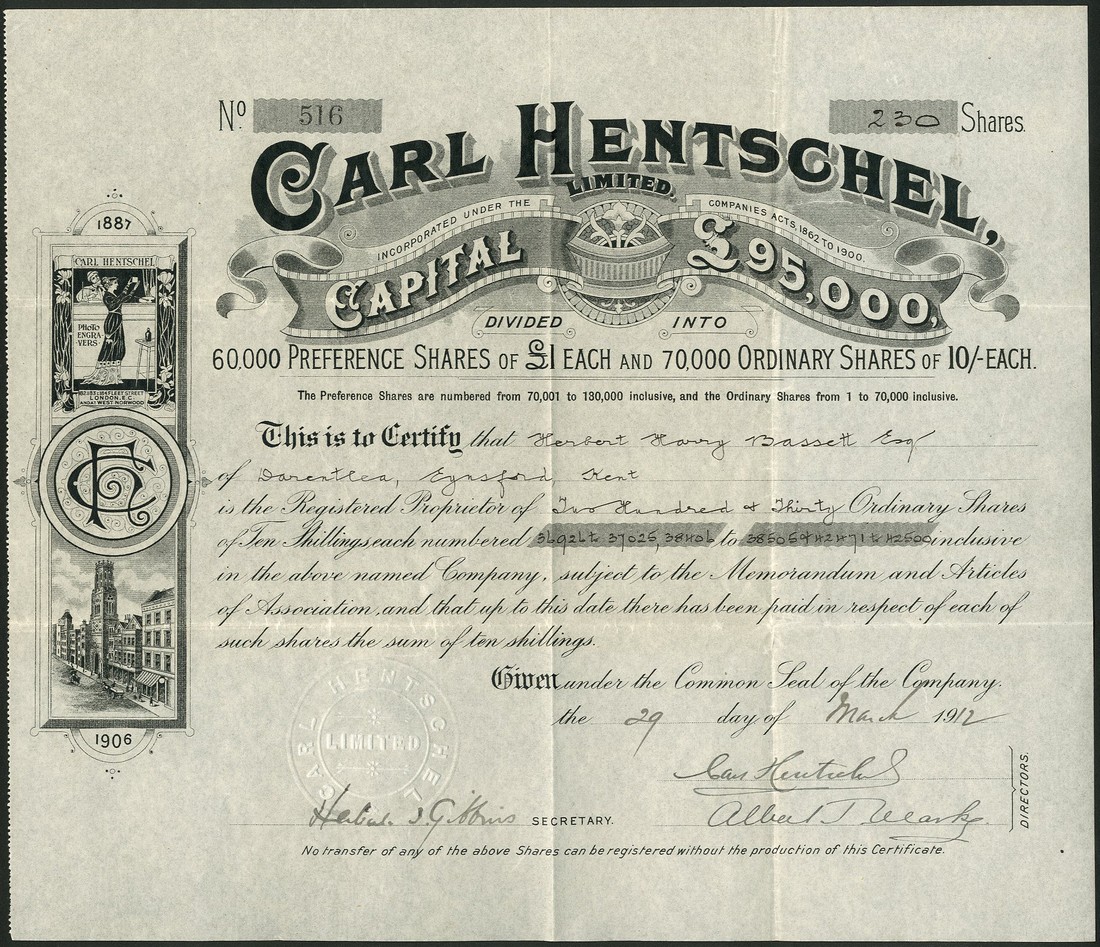 No. 516
230 Shares.
CARL HENTSCHEL,
LIMITED,
INCORPORATED UNDER THE COMPANIES ACTS, 1862 TO 1900.
CAPITAL £95,000,
DIVIDED INTO
60,000 PREFERENCE SHARES OF £1 EACH AND 70,000 ORDINARY SHARES OF 10/- EACH.
The Preference Shares are numbered from 70,001 to 130,000 inclusive, and the Ordinary Shares from 1 to 70,000 inclusive.
This is to Certify that Herbert Harry Bassett Esq
of Darenthlea, Eynsford Kent
is the Registered Proprietor of Two Hundred & Thirty Ordinary Shares
of Ten Shillings each numbered 36926 to 37025, 38406 to 38505 & 42471 to 42500 inclusive
in the above named Company, subject to the Memorandum and Articles
of Association, and that up to this date there has been paid in respect of each of
such shares the sum of ten shillings.
Given under the Common Seal of the Company.
the 29 day of March 1912
Carl Hentschel
Albert
DIRECTORS.
Gibbins SECRETARY.
No transfer of any of the above Shares can be registered without the production of this Certificate.
1887
CARL HENTSCHEL
PHOTO
ENGRA
VERS
182·183 & 184 FLEET STREET
LONDON, E.C.
AND AT WEST NORWOOD
CH
1906
CARL HENTSCHEL
LIMITED